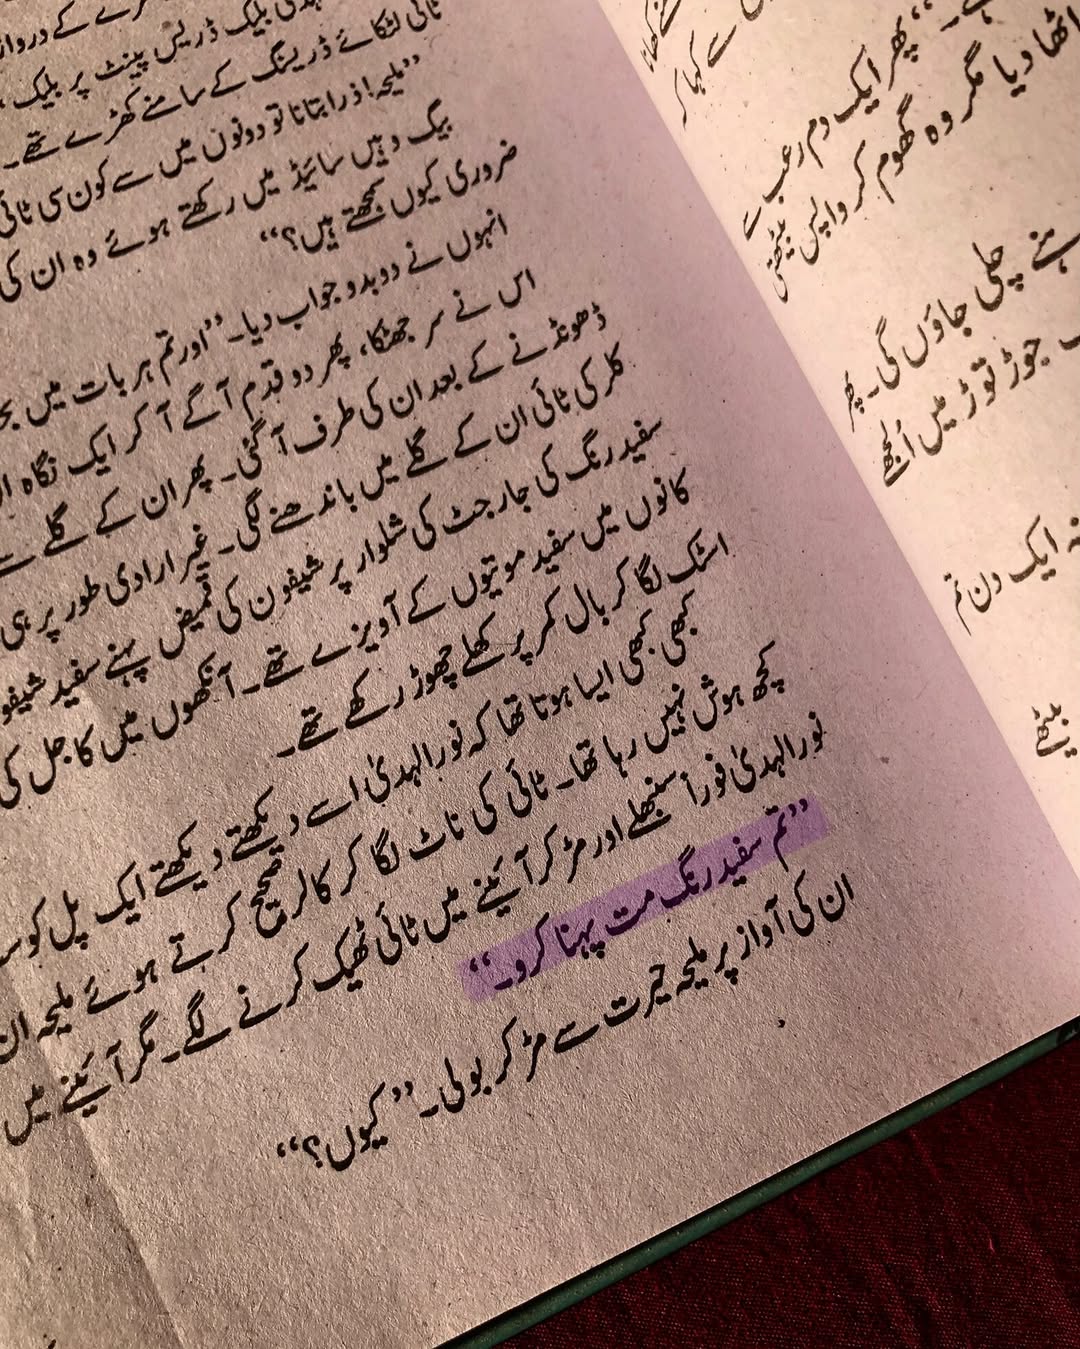 سے کہا کہ
پھر ایک دم رعب سے
اٹھا دیا مگر وہ گھوم کر واپس بیٹھتی
چلی جاؤں گی۔ پھر
جوڑ توڑ میں اُلجھے
ایک دن تم
بیٹھے
کے درواز
بلیک ڈریس پینٹ پر بلیک،
ٹائی لٹکائے ڈریسنگ کے سامنے کھڑے تھے۔
”ملیحہ! ذرا بتانا تو دونوں میں سے کون سی ٹائی
بیگ وہیں سائیڈ میں رکھتے ہوئے وہ ان کی
ضروری کیوں سمجھتے ہیں؟“
انہوں نے دوبدو جواب دیا۔ ”اور تم ہر بات میں
اس نے سر جھٹکا، پھر دو قدم آگے آ کر ایک نگاہ
ڈھونڈنے کے بعد ان کی طرف آ گئی۔ پھر ان کے گلے
کلر کی ٹائی ان کے گلے میں باندھنے لگی۔ غیر ارادی طور پر ہی
سفید رنگ کی جارجٹ کی شلوار پر شیفون کی قمیض پہنے سفید شیفو
کانوں میں سفید موتیوں کے آویزے تھے۔ آنکھوں میں کاجل کی
اسٹک لگا کر بال کمر پر کھلے چھوڑ رکھے تھے۔
کبھی کبھی ایسا ہوتا تھا کہ نورالہدیٰ اسے دیکھتے دیکھتے ایک پل کو
کچھ ہوش نہیں رہا تھا۔ ٹائی کی ناٹ لگا کر کالر صحیح کرتے ہوئے ملیحہ ان
نورالہدیٰ فوراً سنبھلے اور مڑ کر آئینے میں ٹائی ٹھیک کرنے لگے۔ مگر آئینے میں
”تم سفید رنگ مت پہنا کرو۔“
ان کی آواز پر ملیحہ حیرت سے مڑ کر بولی۔ ”کیوں؟“